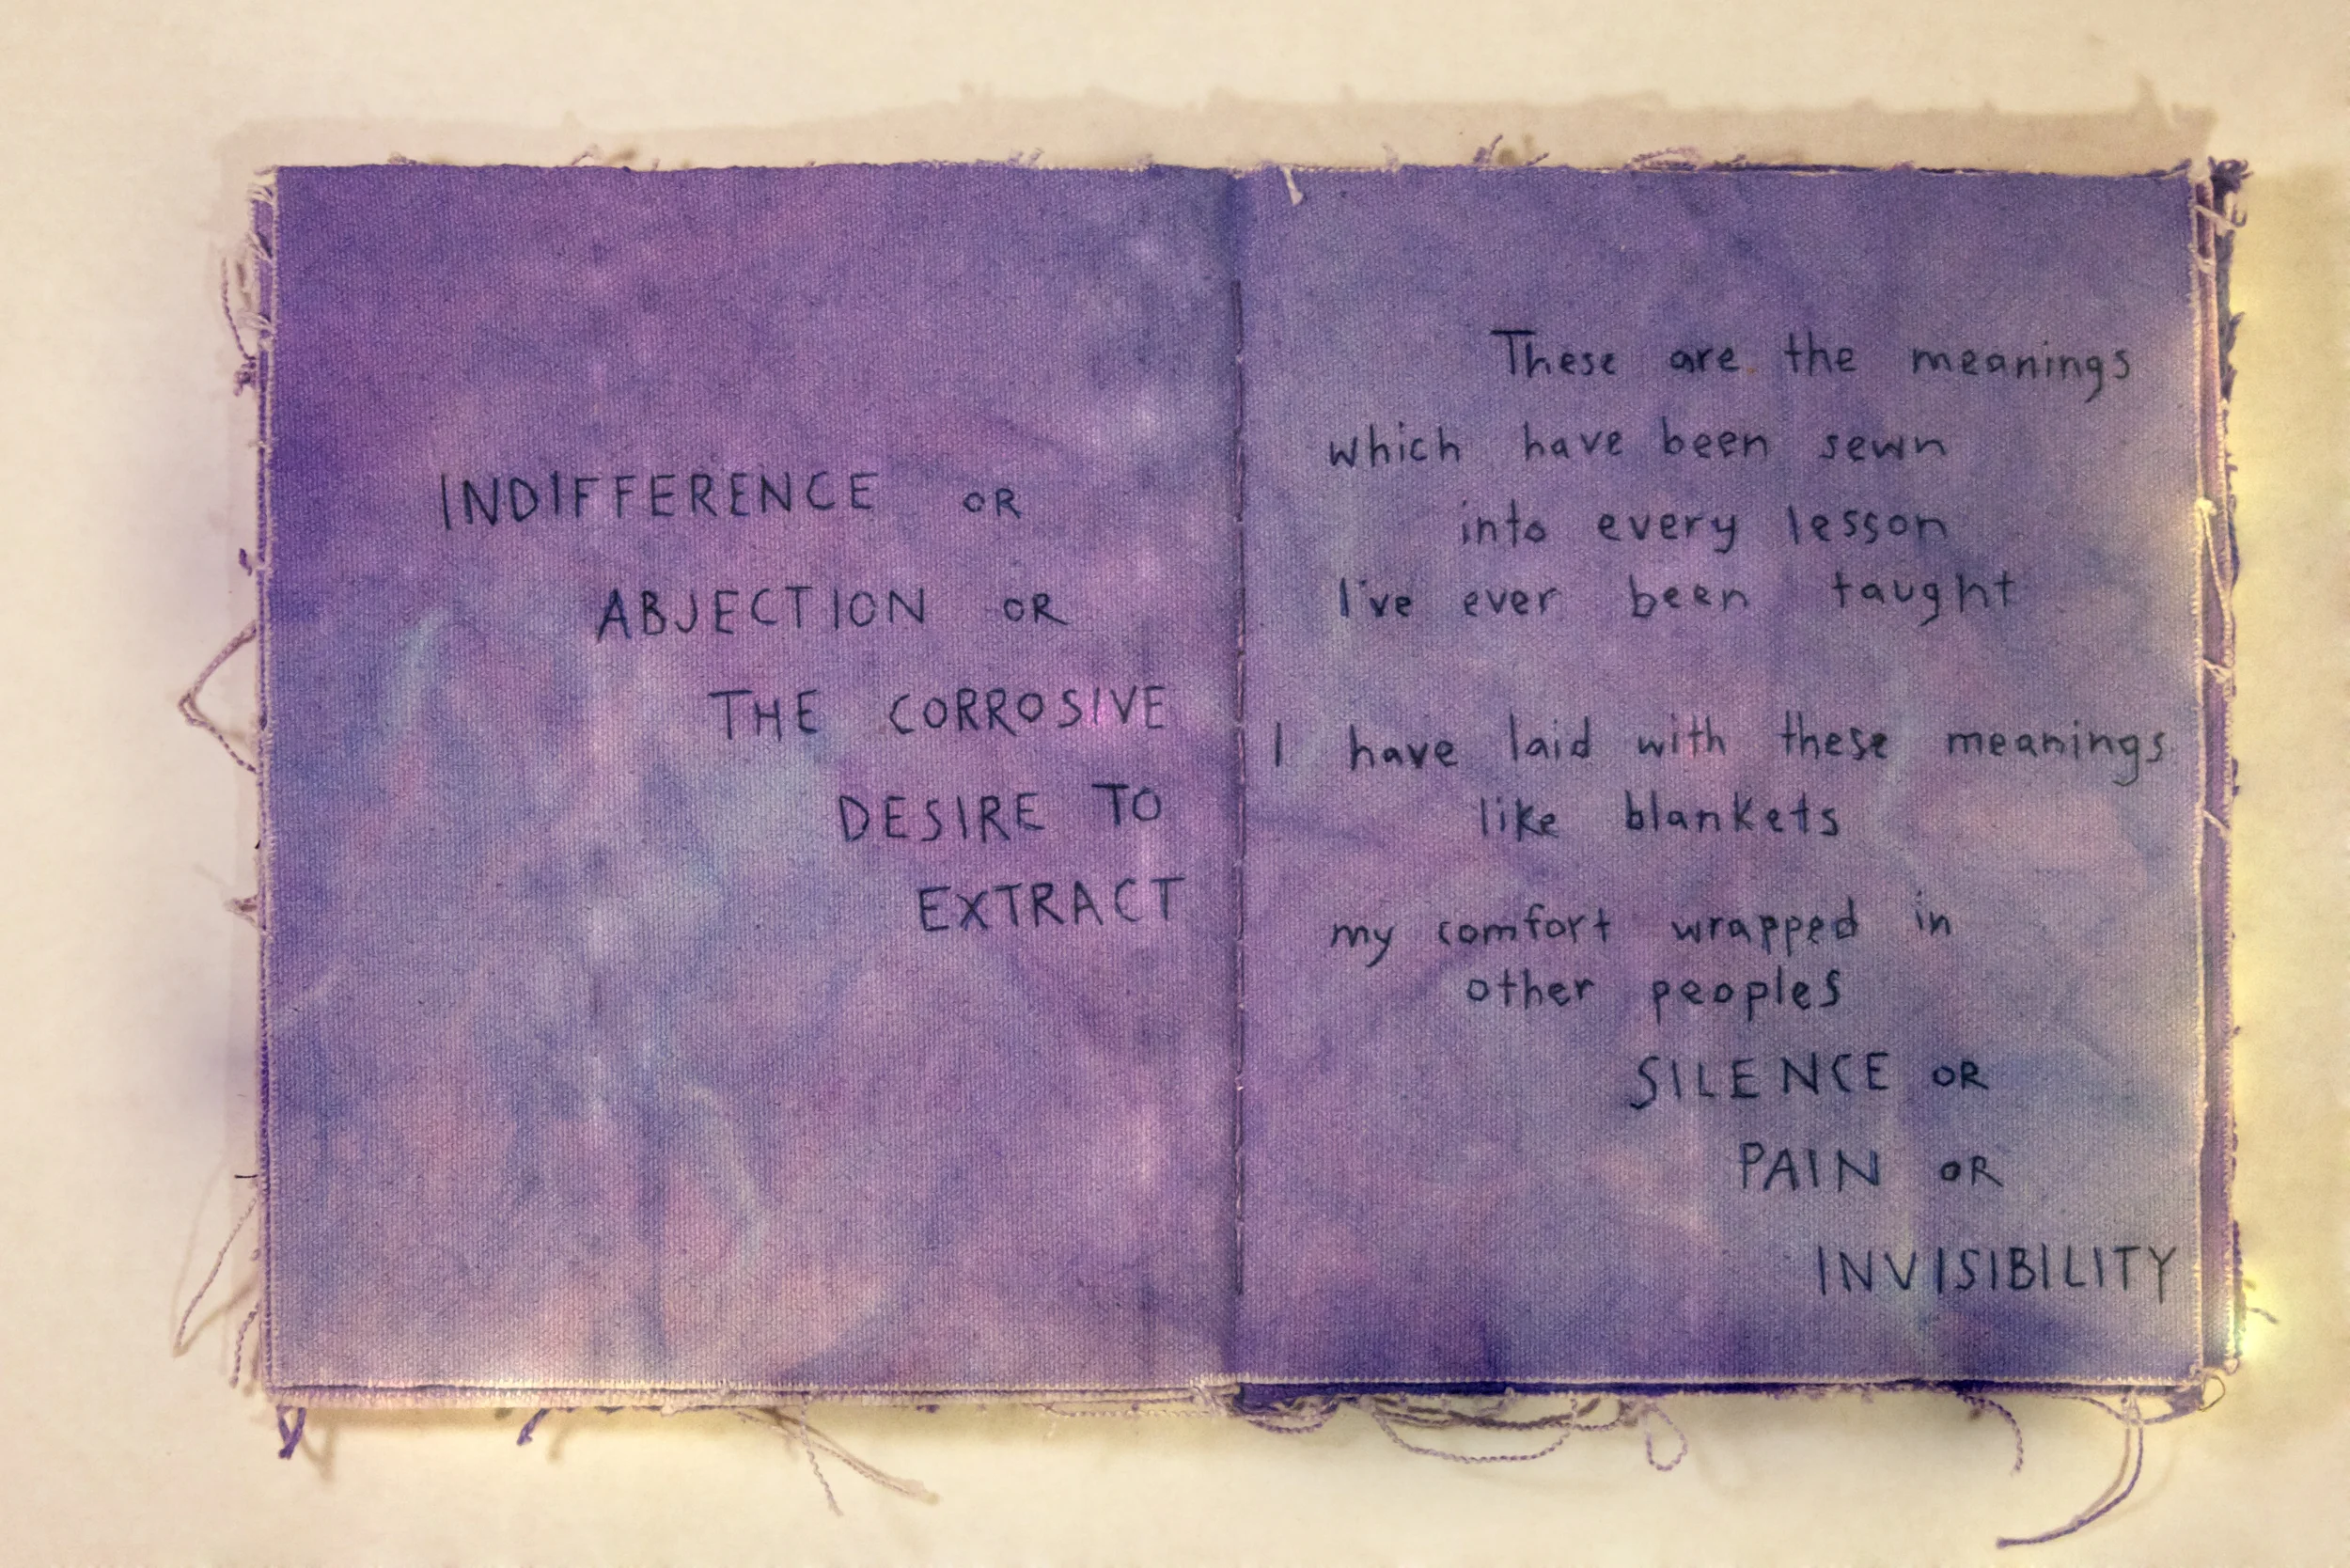 INDIFFERENCE OR
ABJECTION OR
THE CORROSIVE
DESIRE TO
EXTRACT
These are the meanings
which have been sewn
into every lesson
I've ever been taught
I have laid with these meanings
like blankets
my comfort wrapped in
other peoples
SILENCE OR
PAIN OR
INVISIBILITY